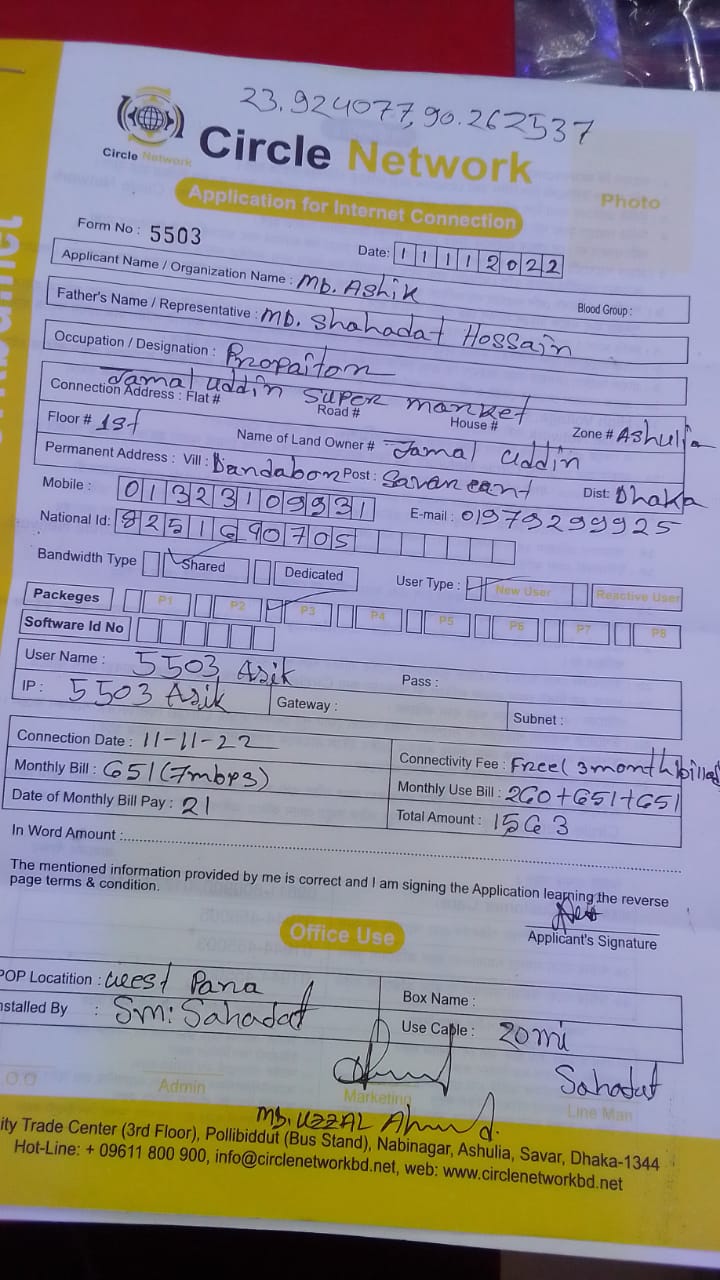 23.924077,90.262537
Circle Network
Circle Network
Application for Internet Connection
Photo
Form No : 5503
Date: 11112022
Applicant Name / Organization Name : MD. Ashik
Blood Group :
Father's Name / Representative : MD. Shahadat Hossain
Occupation / Designation : Propaitor
Jamal uddin super market
Connection Address : Flat # Road # House # Zone # Ashulia
Floor # 1st Name of Land Owner # Jamal uddin
Permanent Address : Vill : Dandabon Post : Savar cant Dist: Dhaka
Mobile : 01323109931 E-mail : 01979299925
National Id: 8251690705
Bandwidth Type Shared Dedicated User Type : New User Reactive User
Packeges P1 P2 P3 P4 P5 P6 P7 P8
Software Id No
User Name : 5503 Asik Pass :
IP : 5503 Asik Gateway : Subnet :
Connection Date : 11-11-22 Connectivity Fee : Free( 3month billed
Monthly Bill : 651(7mbps) Monthly Use Bill : 260+651+651
Date of Monthly Bill Pay : 21 Total Amount : 1563
In Word Amount :
The mentioned information provided by me is correct and I am signing the Application learning the reverse
page terms & condition.
Applicant's Signature
Office Use
POP Locatition : West Para Box Name :
nstalled By : Sm: Sahadat Use Caple : 20mi
Sahadat
.O.O Admin Marketing Line Man
MD. UZZAL Ahmed.
ity Trade Center (3rd Floor), Pollibiddut (Bus Stand), Nabinagar, Ashulia, Savar, Dhaka-1344
Hot-Line: + 09611 800 900, info@circlenetworkbd.net, web: www.circlenetworkbd.net